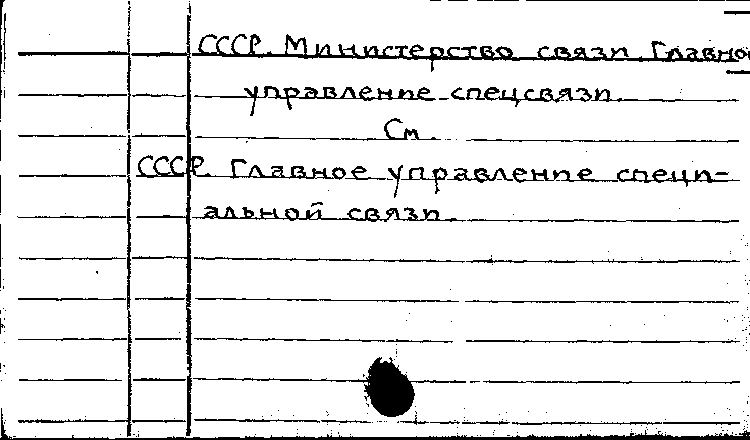 СССР. Министерство связи. Главно
управление спецсвязи.
См.
СССР. Главное управление специ-
альной связи.